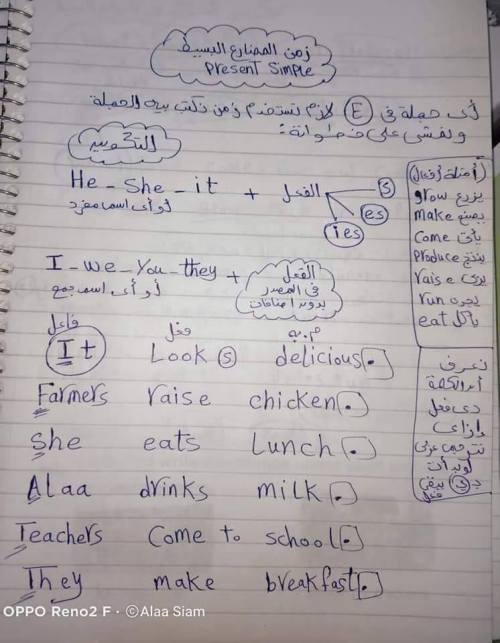 زمن المضارع البسيط
Present Simple
أى جملة فى E لازم نستخدم زمن نكتب بيه الجملة
ونمشى على خطواته:
التكوين
He - She - it + الفعل s es ies
أو أى اسم مفرد
I - we - You - they + الفعل فى المصدر بدون اضافات
أو أى اسم جمع
فاعل فعل م. به
It Look s delicious.
Farmers raise chicken.
She eats Lunch.
Alaa drinks milk.
Teachers Come to school.
They make breakfast.
أمثلة أفعال
يزرع grow
يصنع make
يأتى Come
ينتج Produce
يربى raise
يجرى run
يأكل eat
نعرف
أن الكلمة
دى فعل
إزاى
نترجمى عربى
لو بدأت
بـ ي يبقى
فعل
OPPO Reno2 F · ©Alaa Siam